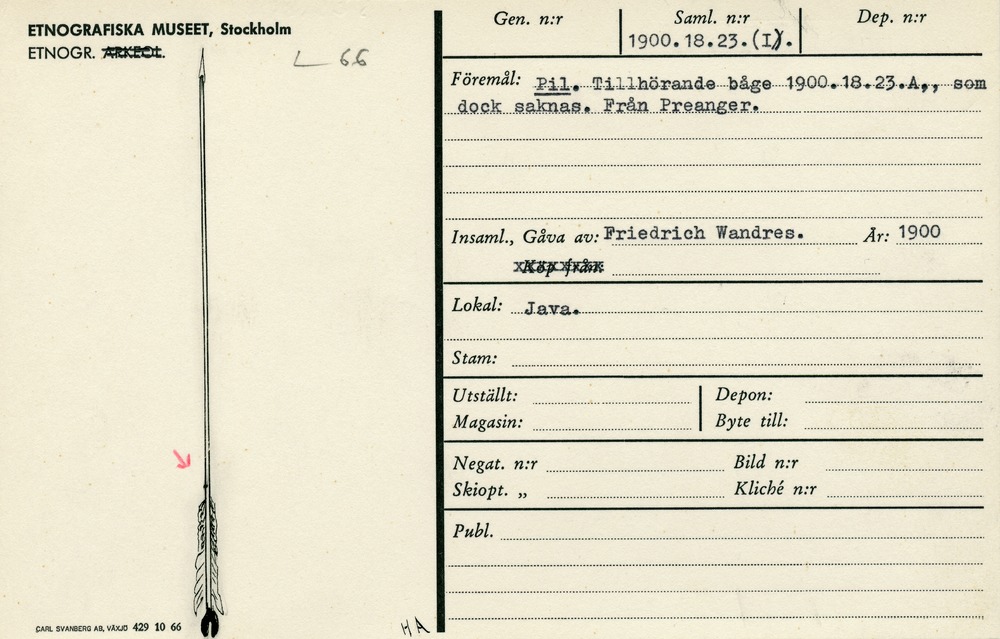 ETNOGRAFISKA MUSEET, Stockholm
ETNOGR. ARKEOL.
L 66
CARL SVANBERG AB, VÄXJÖ 429 10 66
HA
Gen. n:r
Saml. n:r
Dep. n:r
1900.18.23.(I).
Föremål: Pil. Tillhörande båge 1900.18.23.A,, som
dock saknas. Från Preanger.
Insaml., Gåva av: Friedrich Wandres. År: 1900
Köp från
Lokal: Java.
Stam:
Utställt:
Depon:
Magasin:
Byte till:
Negat. n:r
Bild n:r
Skiopt. „
Kliché n:r
Publ.